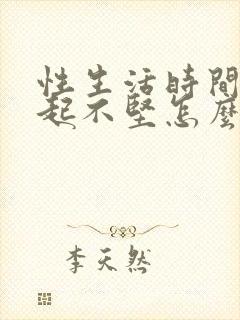 性生活時間
起不堅怎麼
李天然